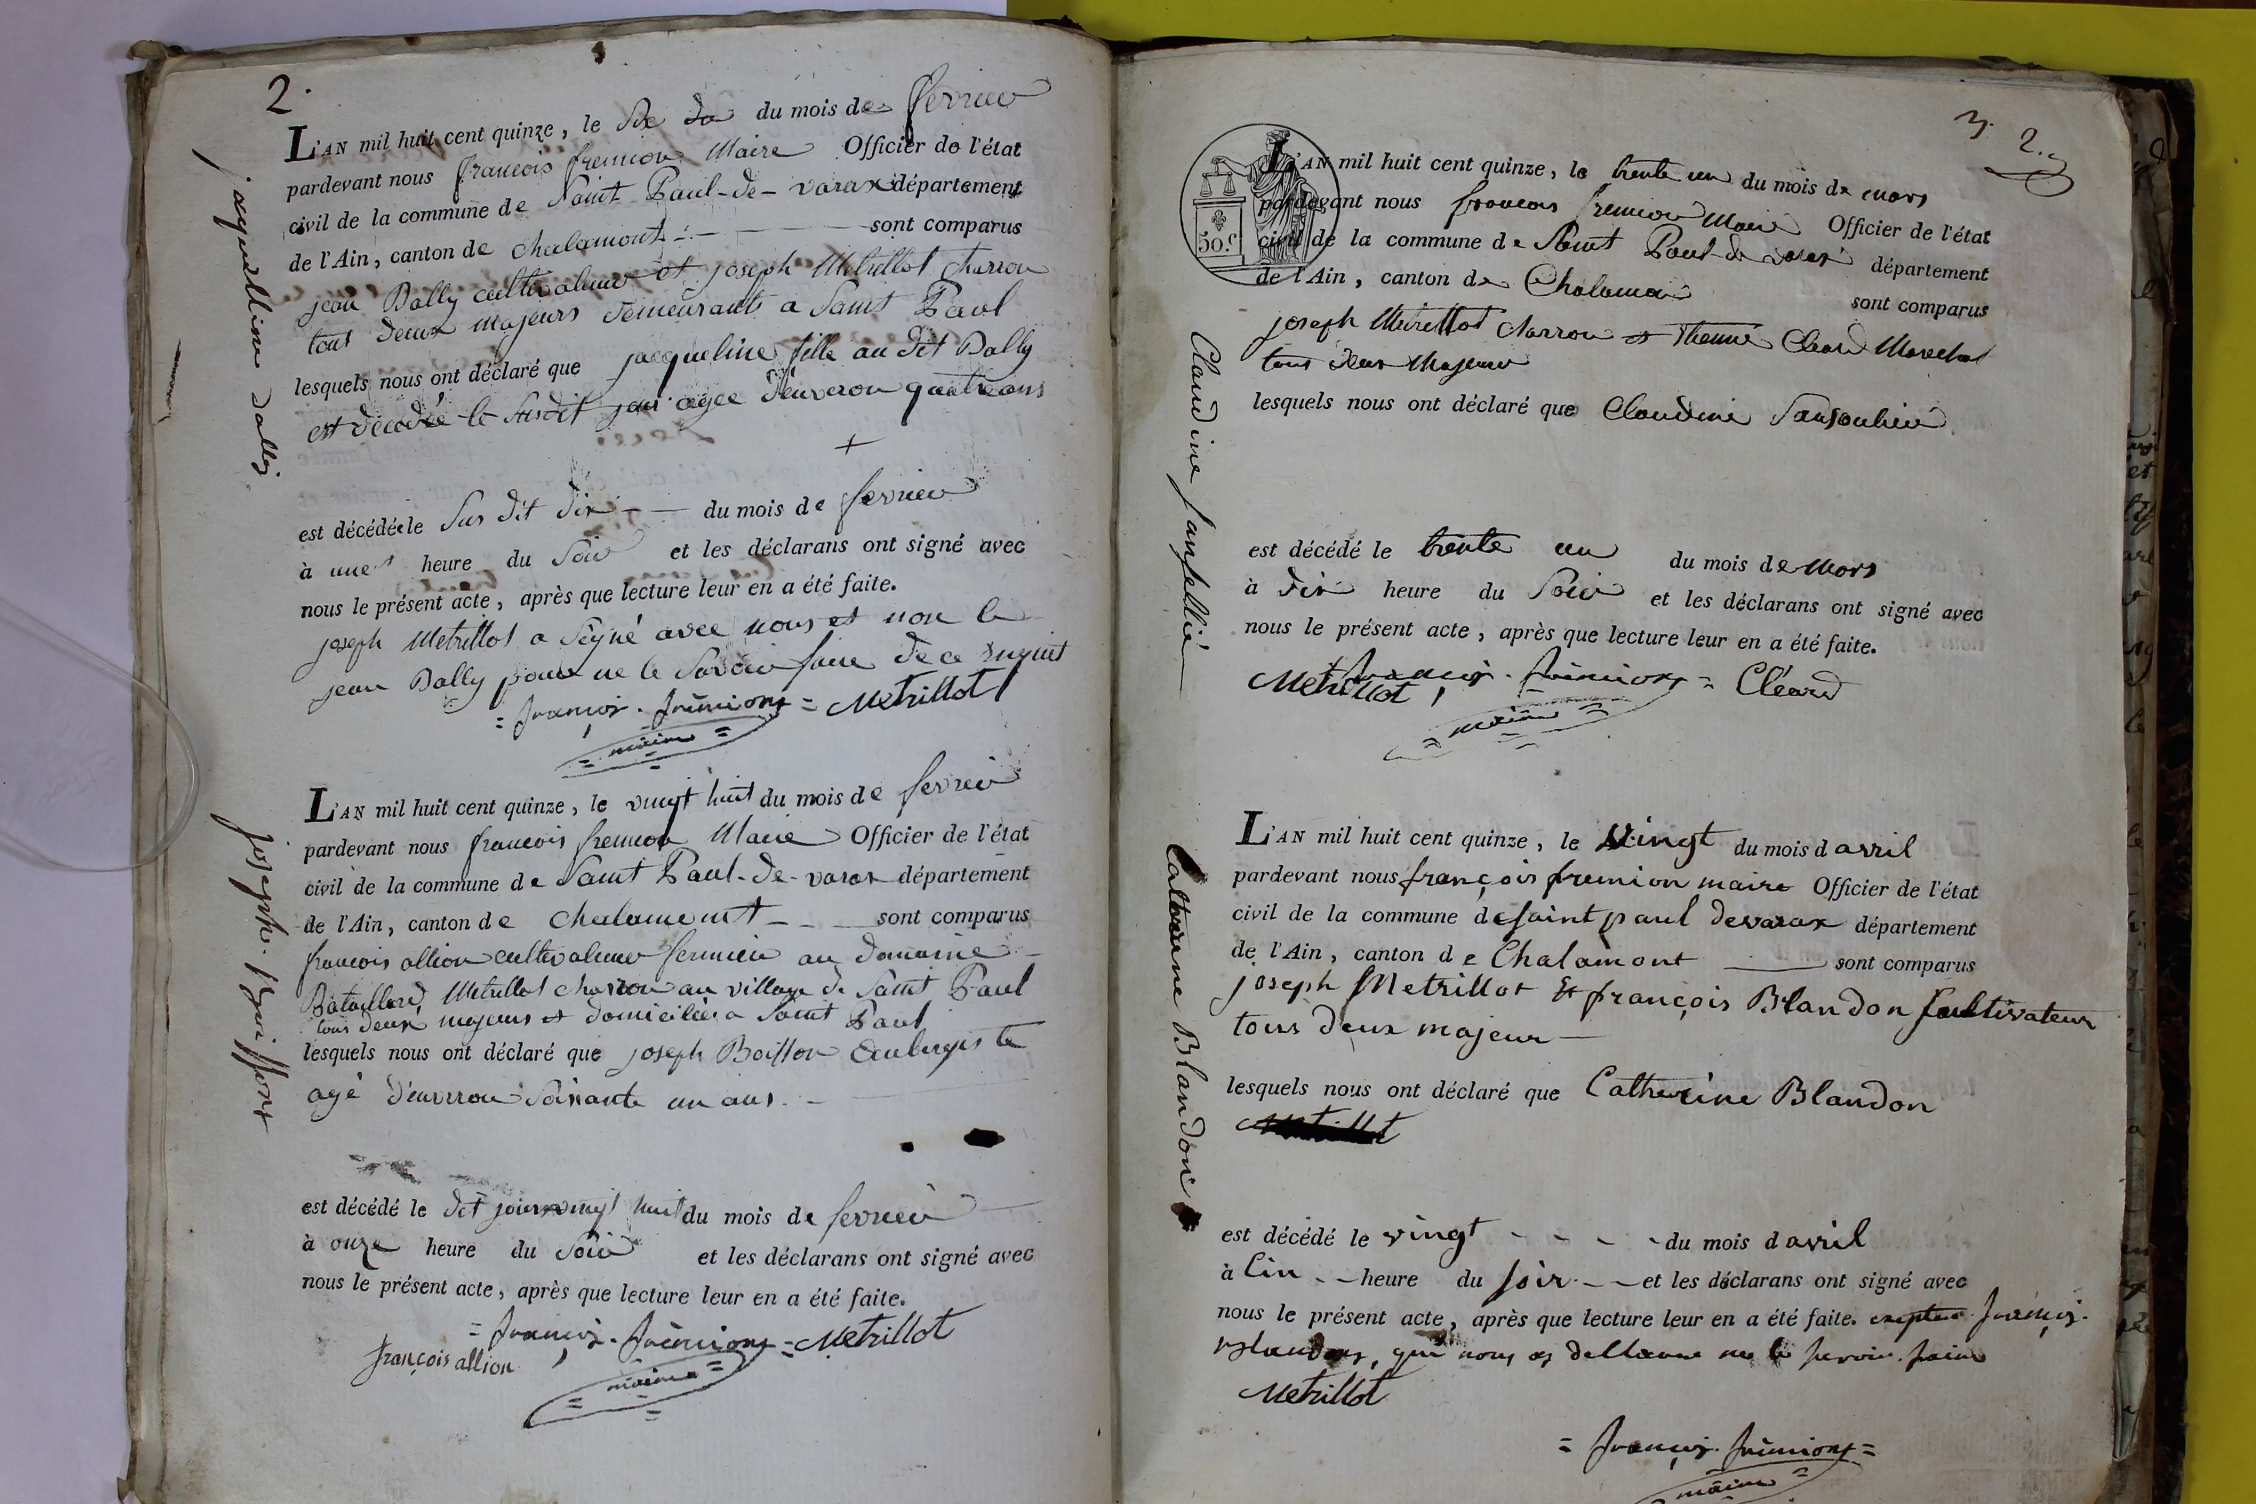 2.
L'AN mil huit cent quinze, le Dix du mois de fevrier
pardevant nous francois fremion Maire Officier de l'état
civil de la commune de Saint Paul-de-varax département
de l'Ain, canton de chalamont sont comparus
jean Dally cultivateur et joseph Metrillot charron
tout deux majeurs demeurants a Saint Paul
lesquels nous ont déclaré que jacqueline fille au dit Dally
est decedée le susdit jour agée d'enveron quatre ans
+
est décédée le Sus dit dix du mois de fevrier
à une heure du Soir et les déclarans ont signé avec
nous le présent acte, après que lecture leur en a été faite.
joseph Metrillot a Signé avec nous et non le
jean Dally pour ne le Savoir faire de ce requit
= françois. fremions = Metrillot
maire
jaquelline dally
L'AN mil huit cent quinze, le vingt huit du mois de fevrier
pardevant nous francois fremion Maire Officier de l'état
civil de la commune de Saint Paul-de-varax département
de l'Ain, canton de chalamont sont comparus
francois allion cultivateur fermier au domaine
Bataillard, Metrillot charron au village de Saint Paul
tous deux majeurs et domiciliés a Saint Paul
lesquels nous ont déclaré que joseph Boisson aubergiste
agé d'enverron Soixante un ans
est décédé le dit jour vingt huit du mois de fevrier
à onze heure du Soir et les déclarans ont signé avec
nous le présent acte, après que lecture leur en a été faite.
= françois. fremions = Metrillot
françois allion
maire
joseph
3. 2.
50.C
L'AN mil huit cent quinze, le trente un du mois de mars
pardevant nous francois fremion Maire Officier de l'état
civil de la commune de Saint Paul-de varax département
de l'Ain, canton de Chalamon sont comparus
joseph Metrillot charron et Cleard Marechal
tous deux Majeur
lesquels nous ont déclaré que Claudine
est décédé le trente un du mois de Mars
à dix heure du Soir et les déclarans ont signé avec
nous le présent acte, après que lecture leur en a été faite.
françois. fremions = Cléard
Metrillot
maire
Claudine
L'AN mil huit cent quinze, le Vingt du mois d avril
pardevant nous françois fremion maire Officier de l'état
civil de la commune de saint paul devarax département
de l'Ain, canton de Chalamont sont comparus
joseph Metrillot Et françois Blandon Cultivateur
tous deux majeur
lesquels nous ont déclaré que Catherine Blandon
est décédé le vingt du mois d avril
à Cin heure du soir et les déclarans ont signé avec
nous le présent acte, après que lecture leur en a été faite. françois.
Blandon, que nous de ne le savoir faire
Metrillot
= françois. fremions =
maire
Blandon